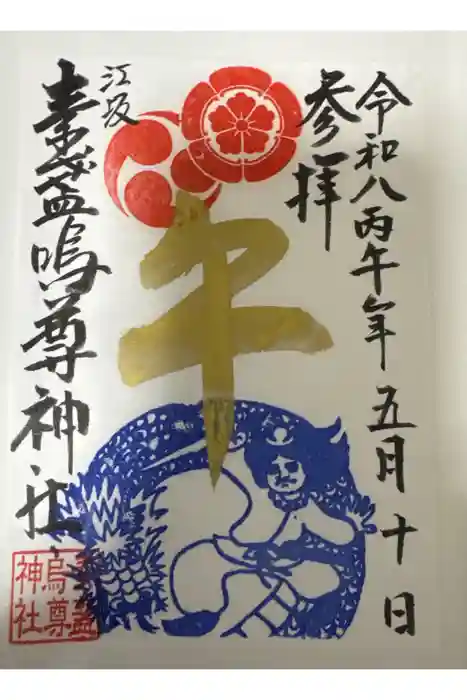 令和八丙午年五月十日
参拝
午
江坂
素盞嗚尊神社
素盞
烏尊
神社